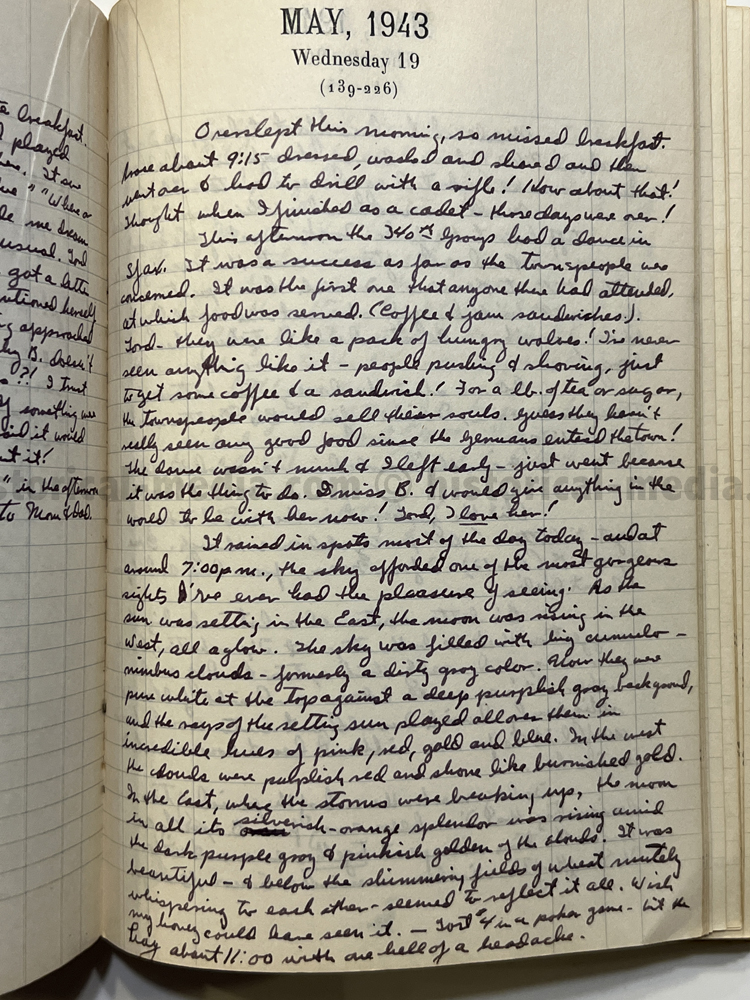 te breakfast.
I played
here. It are
"Where or
de me dream
usual. Lord
got a letter
mentioned herself
approached
B. doesn't
?! I trust
If something was
said it would
ut it!
" in the afternoon
to Mom & Dad.
MAY, 1943
Wednesday 19
(139-226)
Overslept this morning, so missed breakfast.
Arose about 9:15 dressed, washed and shaved and then
went over & had to drill with a rifle! How about that!
Thought when I finished as a cadet - those days were over!
This afternoon the 340th Group had a dance in
Sfax. It was a success as far as the townspeople were
concerned. It was the first one that anyone there had attended,
at which food was served. (Coffee & jam sandwiches!).
Lord - they were like a pack of hungry wolves! I've never
seen anything like it - people pushing & shoving, just
to get some coffee & a sandwich! For a lb. of tea or sugar,
the townspeople would sell their souls. Guess they haven't
really seen any good food since the Germans entered the town!
The dance wasn't much & I left early - just went because
it was the thing to do. I miss B. & would give anything in the
world to be with her now! Lord, I love her!
It rained in spots most of the day today - and at
around 7:00 p.m., the sky afforded one of the most gorgeous
sights I've ever had the pleasure of seeing. As the
sun was settig in the East, the moon was rising in the
West, all aglow. The sky was filled with big cumulo -
nimbus clouds - formerly a dirty gray color. Now they were
pure white at the top against a deep purplish gray background,
and the rays of the setting sun played all over them in
incredible hues of pink, red, gold and blue. In the west
the clouds were pulplish red and shone like burnished gold.
In the East, where the storms were breaking up, the moon
in all its silverish-orange splendor was rising amid
the dark purple gray & pinkish golden of the clouds. It was
beautiful - & below the shimmering fields of wheat mutely
whispering to each other - seemed to reflect it all. Wish
my honey could have seen it. - Lost $4 in a poker game - hit the
hay about 11:00 with one hell of a headache.